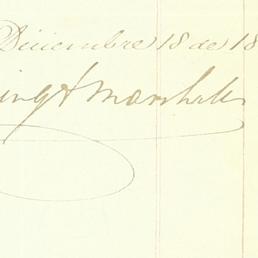 Diciembre 18 de 18
ing & Marshall